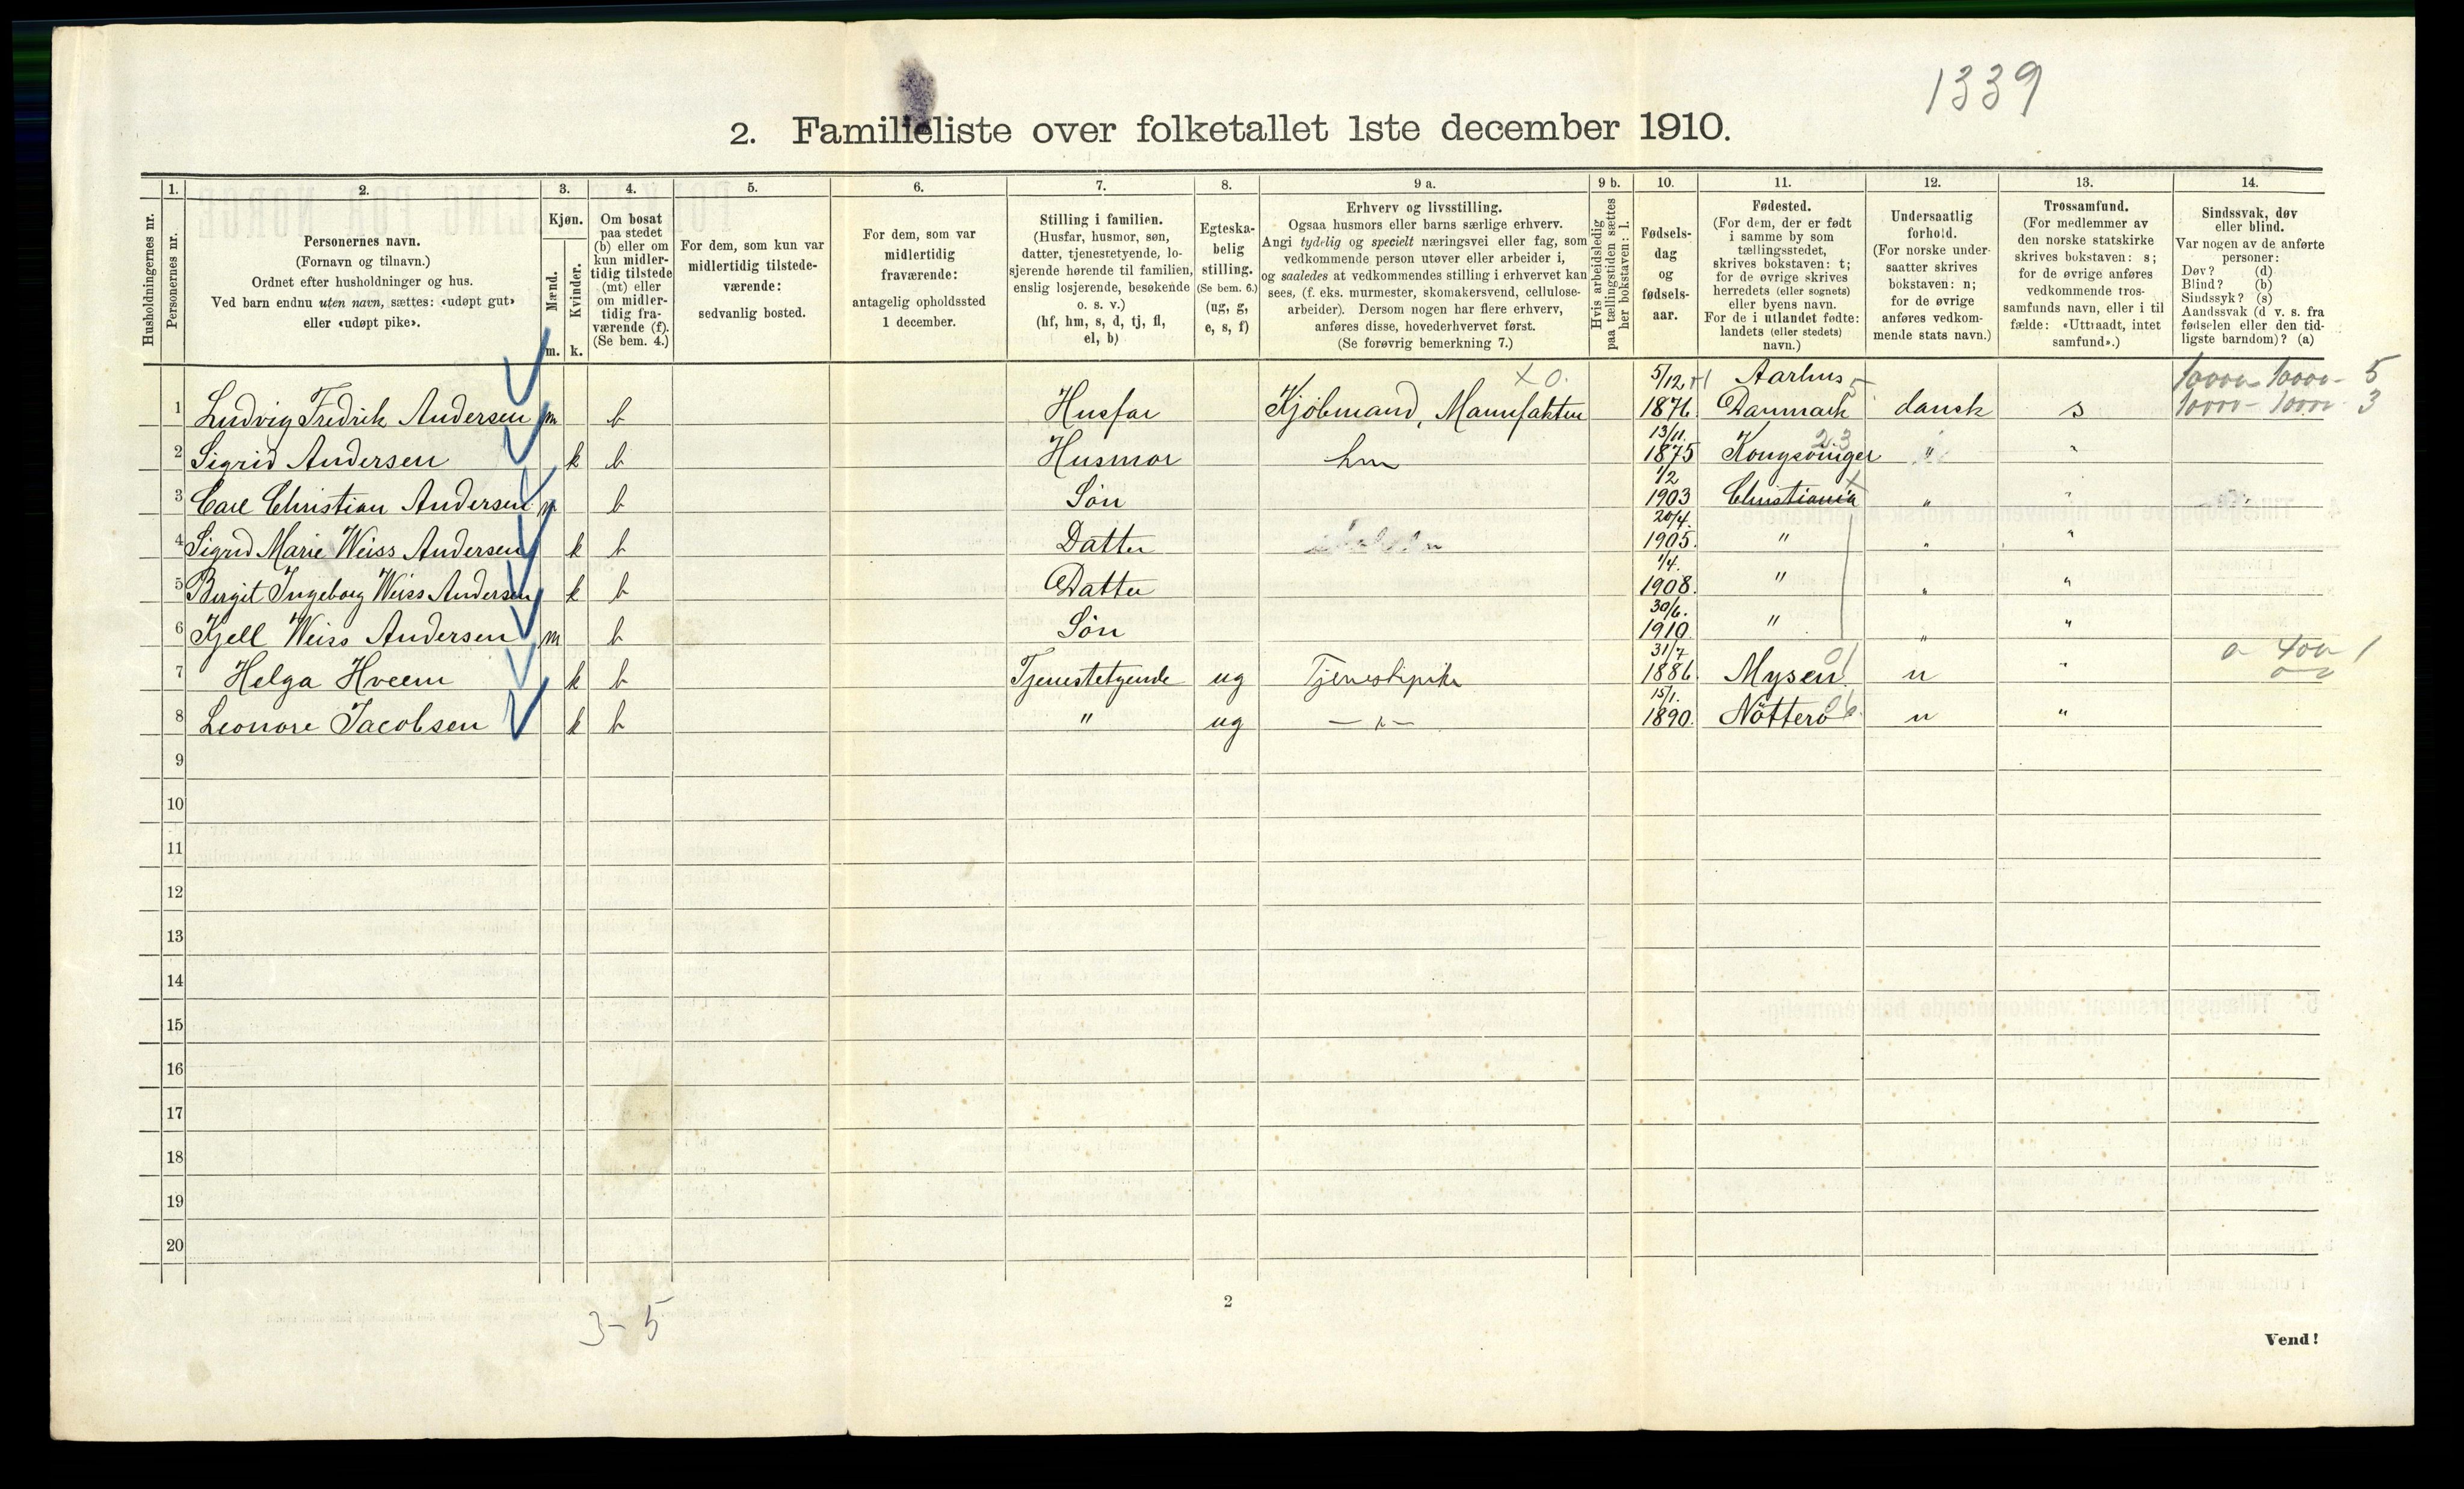 1339
2. Familieliste over folketallet 1ste december 1910.
1. 2. 3. 4. 5. 6. 7. 8. 9 a. 9 b. 10. 11. 12. 13. 14.
Husholdningernes nr.
Personernes nr.
Personernes navn.
(Fornavn og tilnavn.)
Ordnet efter husholdninger og hus.
Ved barn endnu uten navn, sættes: «udøpt gut»
eller «udøpt pike».
Kjøn.
Mænd.
Kvinder.
m. k.
Om bosat
paa stedet
(b) eller om
kun midler-
tidig tilstede
(mt) eller
om midler-
tidig fra-
værende (f).
(Se bem. 4.)
For dem, som kun var
midlertidig tilstede-
værende:
sedvanlig bosted.
For dem, som var
midlertidig
fraværende:
antagelig opholdssted
1 december.
Stilling i familien.
(Husfar, husmor, søn,
datter, tjenestetyende, lo-
sjerende hørende til familien,
enslig losjerende, besøkende
o. s. v.)
(hf, hm, s, d, tj, fl,
el, b)
Egteska-
belig
stilling.
(Se bem. 6.)
(ug, g,
e, s, f)
Erhverv og livsstilling.
Ogsaa husmors eller barns særlige erhverv.
Angi tydelig og specielt næringsvei eller fag, som
vedkommende person utøver eller arbeider i,
og saaledes at vedkommendes stilling i erhvervet kan
sees, (f. eks. murmester, skomakersvend, cellulose-
arbeider). Dersom nogen har flere erhverv,
anføres disse, hovederhvervet først.
(Se forøvrig bemerkning 7.)
Hvis arbeidsledig
paa tællingstiden sættes
her bokstaven: l.
Fødsels-
dag
og
fødsels-
aar.
Fødested.
(For dem, der er født
i samme by som
tællingsstedet,
skrives bokstaven: t;
for de øvrige skrives
herredets (eller sognets)
eller byens navn.
For de i utlandet fødte:
landets (eller stedets)
navn.)
Undersaatlig
forhold.
(For norske under-
saatter skrives
bokstaven: n;
for de øvrige
anføres vedkom-
mende stats navn.)
Trossamfund.
(For medlemmer av
den norske statskirke
skrives bokstaven: s;
for de øvrige anføres
vedkommende tros-
samfunds navn, eller i til
fælde: «Uttraadt, intet
samfund».)
Sindssvak, døv
eller blind.
Var nogen av de anførte
personer:
Døv? (d)
Blind? (b)
Sindssyk? (s)
Aandssvak (d v. s. fra
fødselen eller den tid-
ligste barndom)? (a)
x 0. 5/12 Aarhus 5 10000 - 10000 - 5
1 Ludvig Fredrik Andersen m b Husfar Kjöbmand, Manufaktur 1876 Danmark dansk s 10000 - 10000 - 3
13/11. 2.3
2 Sigrid Andersen k b Husmor hm 1875 Kongsvinger " "
1/2 x
3 Carl Christian Andersen m b Sön 1903 Christiania " "
20/4.
4 Sigrid Marie Weiss Andersen k b Datter 1905. " " "
1/4.
5 Birgit Ingeborg Weiss Andersen k b Datter 1908. " " "
30/6.
6 Kjell Weiss Andersen m b Sön 1910 " " "
31/7 01 0 400 1
7 Helga Hveem k b Tjenestetyende ug Tjenestepike 1886 Mysen n "
15/1. 06
8 Leonore Jacobsen k b " ug — " — 1890. Nötterö n "
9
10
11
12
13
14
15
16
17
18
19
20
3 - 5
2
Vend!